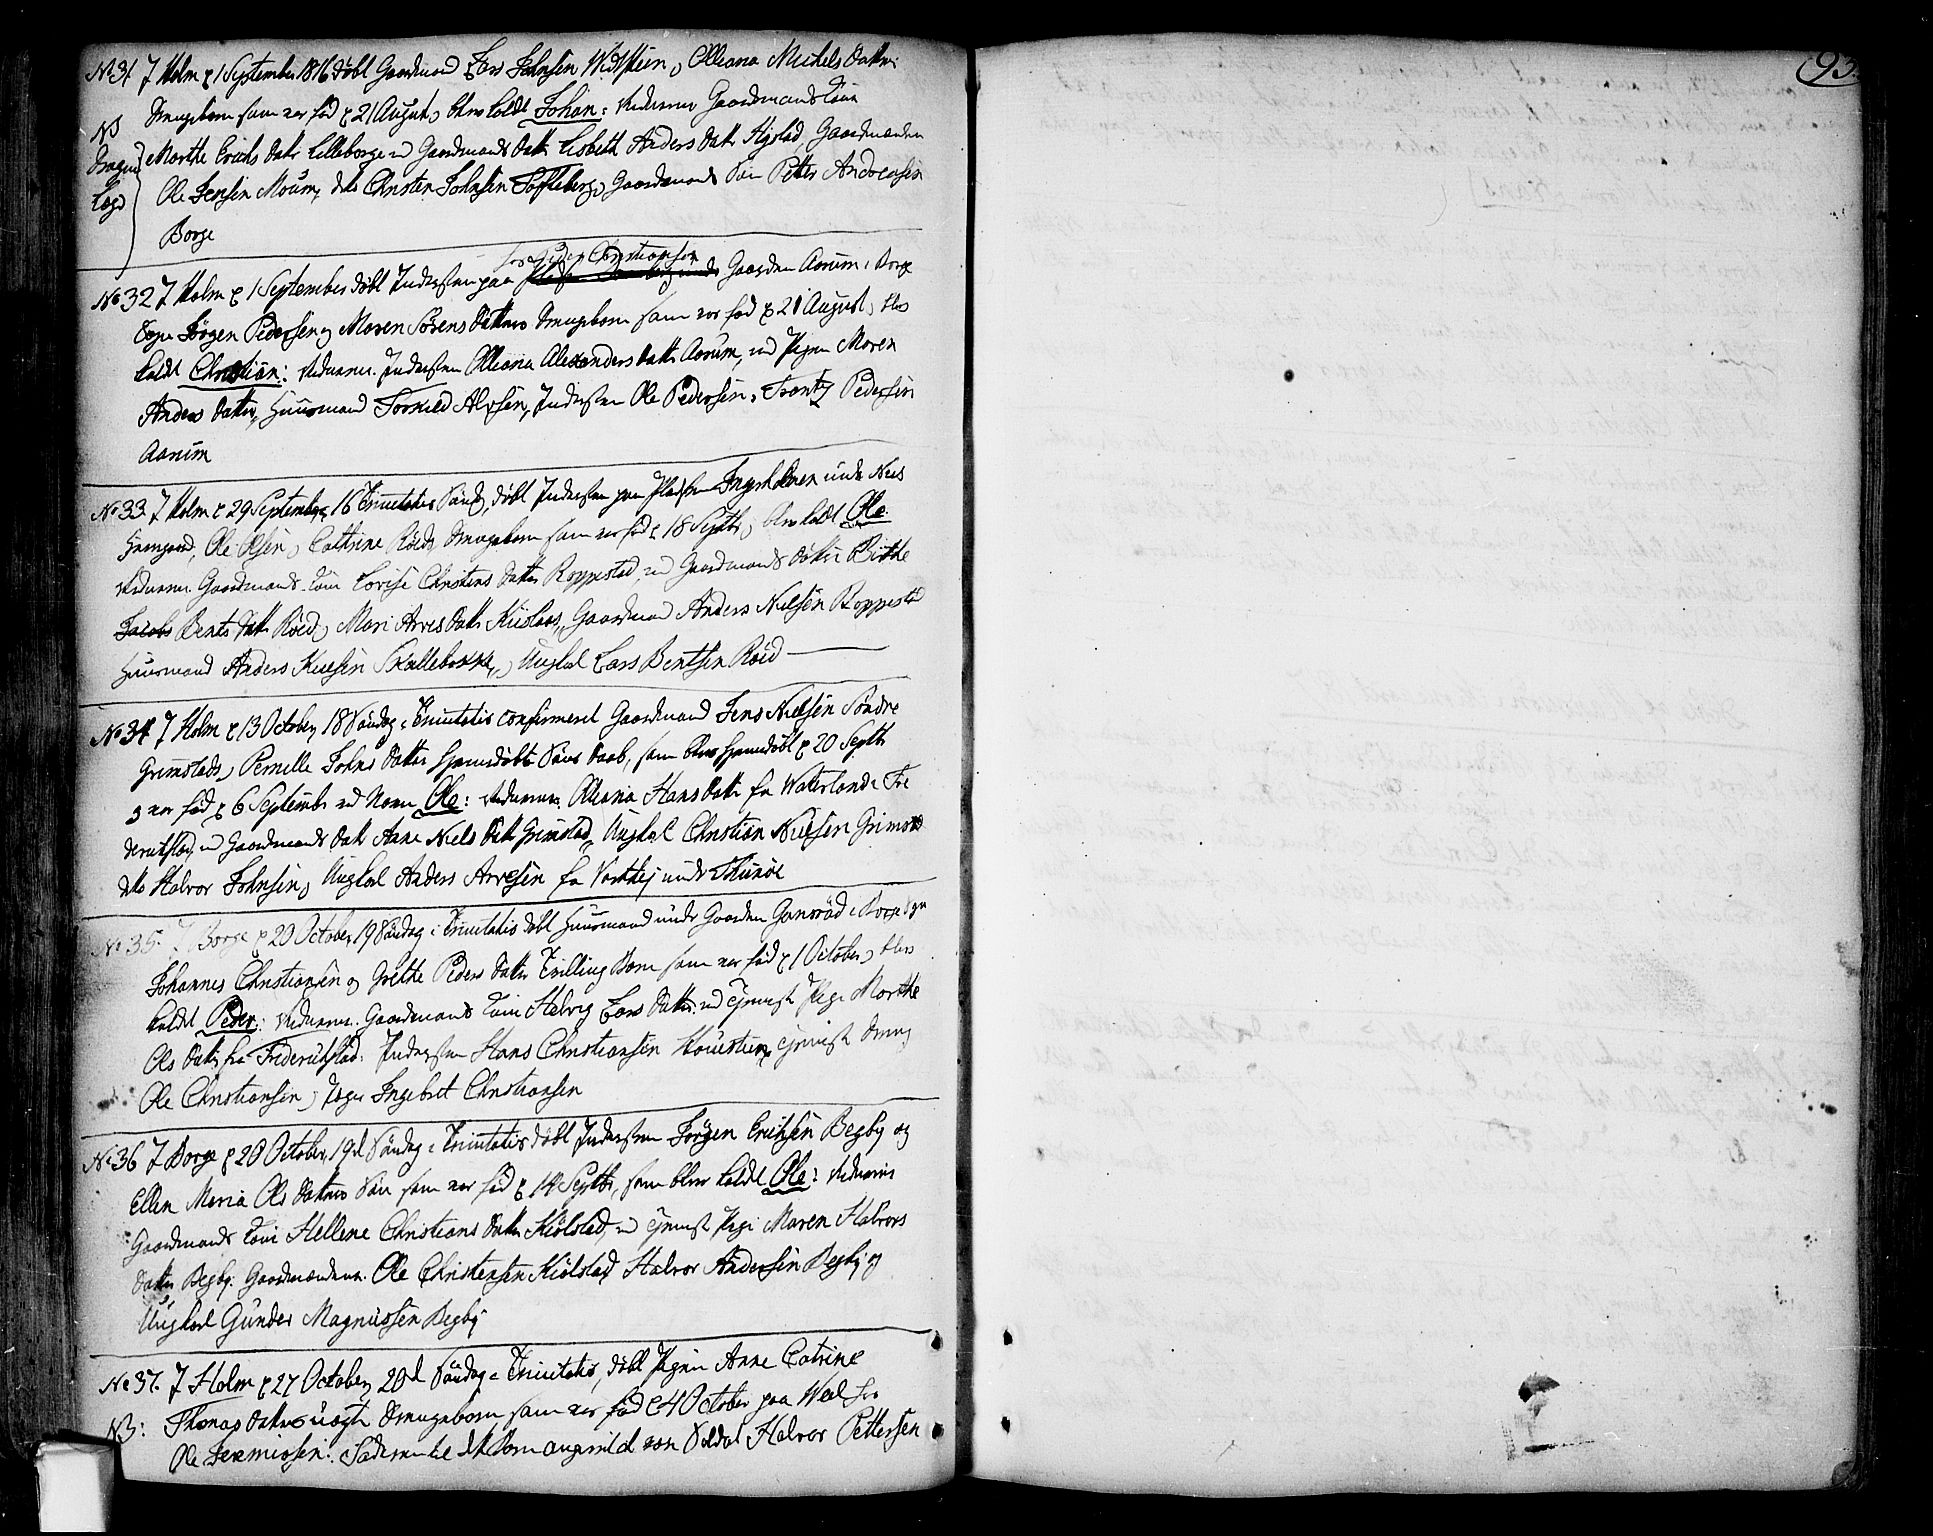 93.
No 31 I Holm d 1 September 1816 døbt Gaardmand Lars Johnsen Widtsteen og Olleana Michels Datters
Drengebarn som var fød d 21 August, blev kaldt Johan: Fadderne Gaardmands Kone
NB
Marthe Erichs Datr Lilleborge ud Gaardmands Datter Lisbeth Anders Datr Hystad, Gaardmændene
Ole Jensen Moum, dito Christen Johnsen Tofteberg, Gaardmands Søn Petter Andreasen
Borge
for Peder Christiansen
No 32 I Holm d 1 September døbt Indersten paa Gaarden Aarum i Borge
Sogn Jørgen Pedersen og Maren Sørens Datters Drengebarn som var fød d 21 August, blev
kaldt Christian: Fadderne. Indersten Olleana Alexanders Datr Aarum, ud Pigen Maren
Anders Datter, Huusmand Torkild Alvsen, Indersten Ole Pedersen, Frantz Pedersen
Aarum
No 33 I Holm d 29 September 16 Trinitatis Søndag, døbt Indersten paa Pladsen Ingerholmen under Nes
Ole Olsen og Cathrine Røeds Drengebarn som var fød d 18 Septbr, blev kaldt Ole
Fadderne. Gaardmands Kone Lovise Christens Datter Roppestad, ud Gaardmands Datter Birthe
Jacobs Bents Datr Røed, Mari Arves Datr Kiislaas, Gaardmand Anders Nielsen Roppestad
Huusmand Anders Knesen Skallebakke, Ungkarl Lars Bentsen Røed
No 34 I Holm d 13 October 18 Søndag i Trinitatis confirmeret Gaardmand Jens Nielsen Søndre
Grimstads og Pernille Johns Datter hjemedøbte Søns Daab, som blev hjemedøbt d 20 Septbr
og var fød d 6 Septembr ud Navn Ole: Fadderne, Olleana Hans Datr fra Waterland i Fre
derichstad, ud Gaardmands Datr Anne Niels Datr Grimstad, Ungkarl Christian Nielsen Grimstad
dito Halvor Johnsen, Ungkarl Anders Arvesen fra under Thunøe
No 35. I Borge d 20 October, 19 Søndag i Trinitatis døbt Huusmand under Gaarden Gansrød i Borge Sogn
Johannes Christiansen og Grethe Peders Datter Tvilling Barn som var fød d 1 October, blev
kaldt Peder: Fadderne. Gaardmands Kone Helvig Lars Datter, ud Tjeneste Pige Marthe
Ols Datter fra Friderichstad: Indersten Hans Christiansen Tjeneste Dreng
Ole Christiansen, Ingebret Christiansen
No 36 I Borge d 20 October, 19d Søndag i Trinitatis døbt Indersten Jørgen Erichsen Begby og
Ellen Maria Ols Datters Søn som var fød d 14 Septbr, som blev kaldt Ole: Fadderne
Gaardmands Kone Hellene Christians Datter Kiølstad, ud Tjeneste Pige Maren Halvors
Datter Begby. Gaardmændene. Ole Christensen Kiølstad, Halvor Andersen Begby og
Ungkarl Gunder Magnussen Begby
No 37. I Holm d 27 October, 20d Søndag i Trinitatis, døbt Pigen Anne Catrine
NB: Thomas Datters uægte Drengebarn, som var fød d 4 October paa Weel for
Ole Jeremissen: Faderen til dette Barn angivet var Soldat Halvor Pettersen